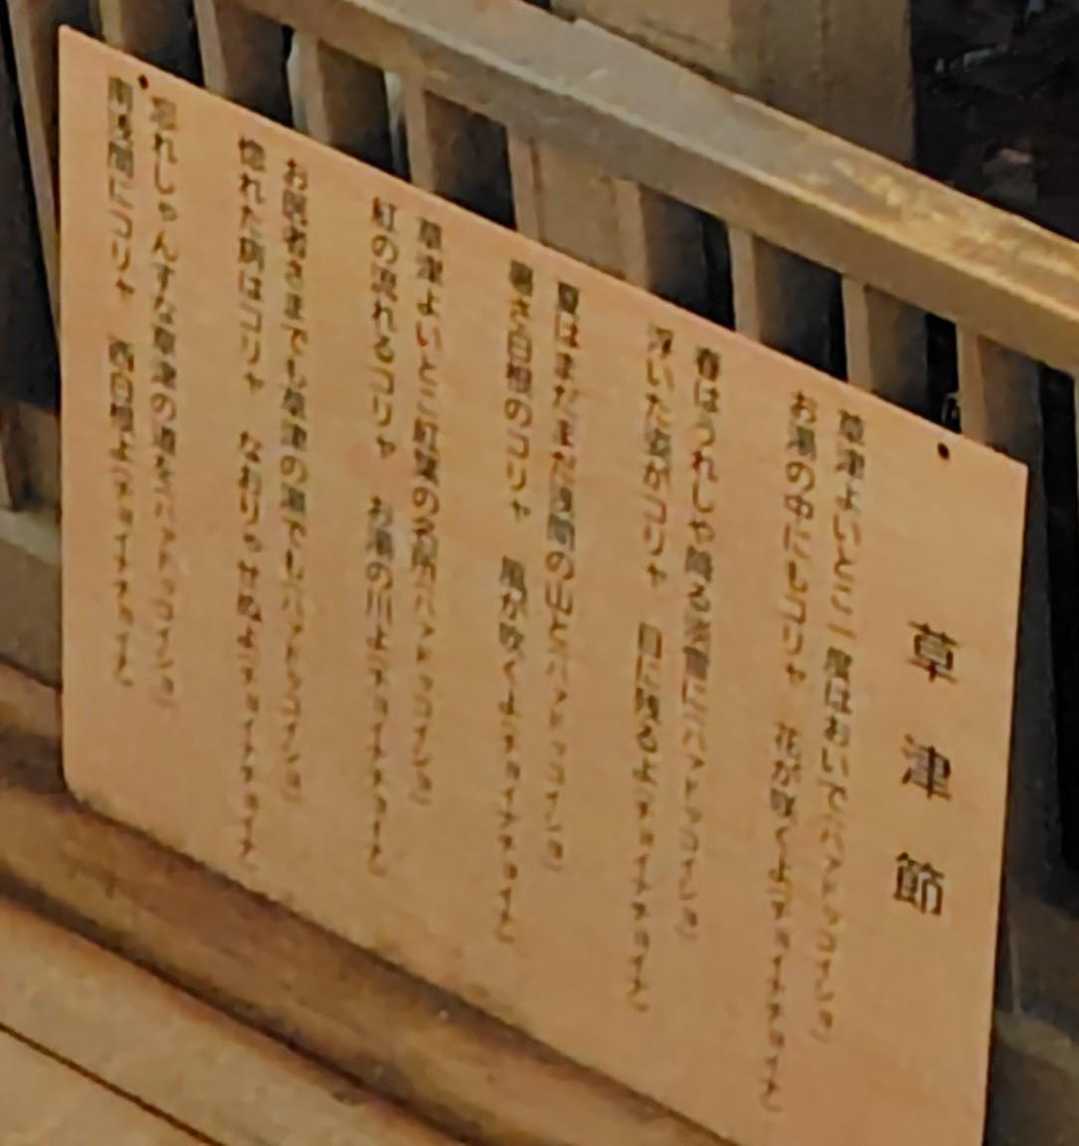 草津節
草津よいとこ 一度はおいで(ハァドッコイショ)
お湯の中にもコリャ 花が咲くよ(チョイナチョイナ)
春はうれしや降る淡雪に(ハァドッコイショ)
浮いた姿がコリャ 目に残るよ(チョイナチョイナ)
夏はまだまだ浅間の山と(ハァドッコイショ)
暑さ白根のコリャ 風が吹くよ(チョイナチョイナ)
草津よいとこ紅葉の名所(ハァドッコイショ)
紅の流れるコリャ お湯の川よ(チョイナチョイナ)
お医者さまでも草津の湯でも(ハァドッコイショ)
惚れた病はコリャ なおりゃせぬよ(チョイナチョイナ)
忘れしゃんすな草津の道を(ハァドッコイショ)
南浅間にコリャ 西白根よ(チョイナチョイナ)